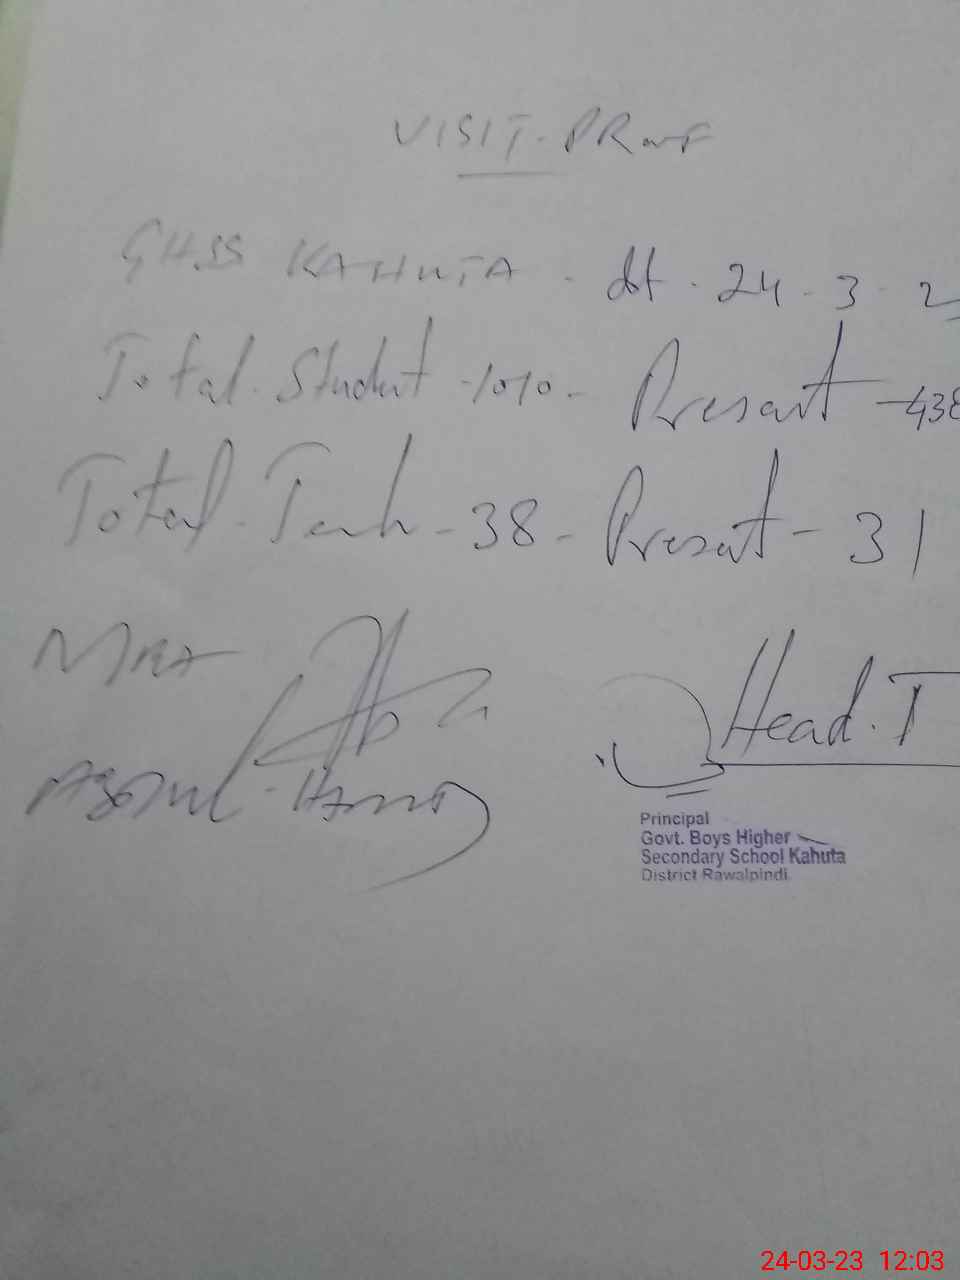 VISIT. PRooF
GHSS KAHUTA. dt. 24. 3. 2
Total. Student -1010- Present -438
Total. Teach - 38 - Present - 31
MEA
Head. T
ABDUL-HAMID
Principal
Govt. Boys Higher
Secondary School Kahuta
District Rawalpindi
24-03-23 12:03